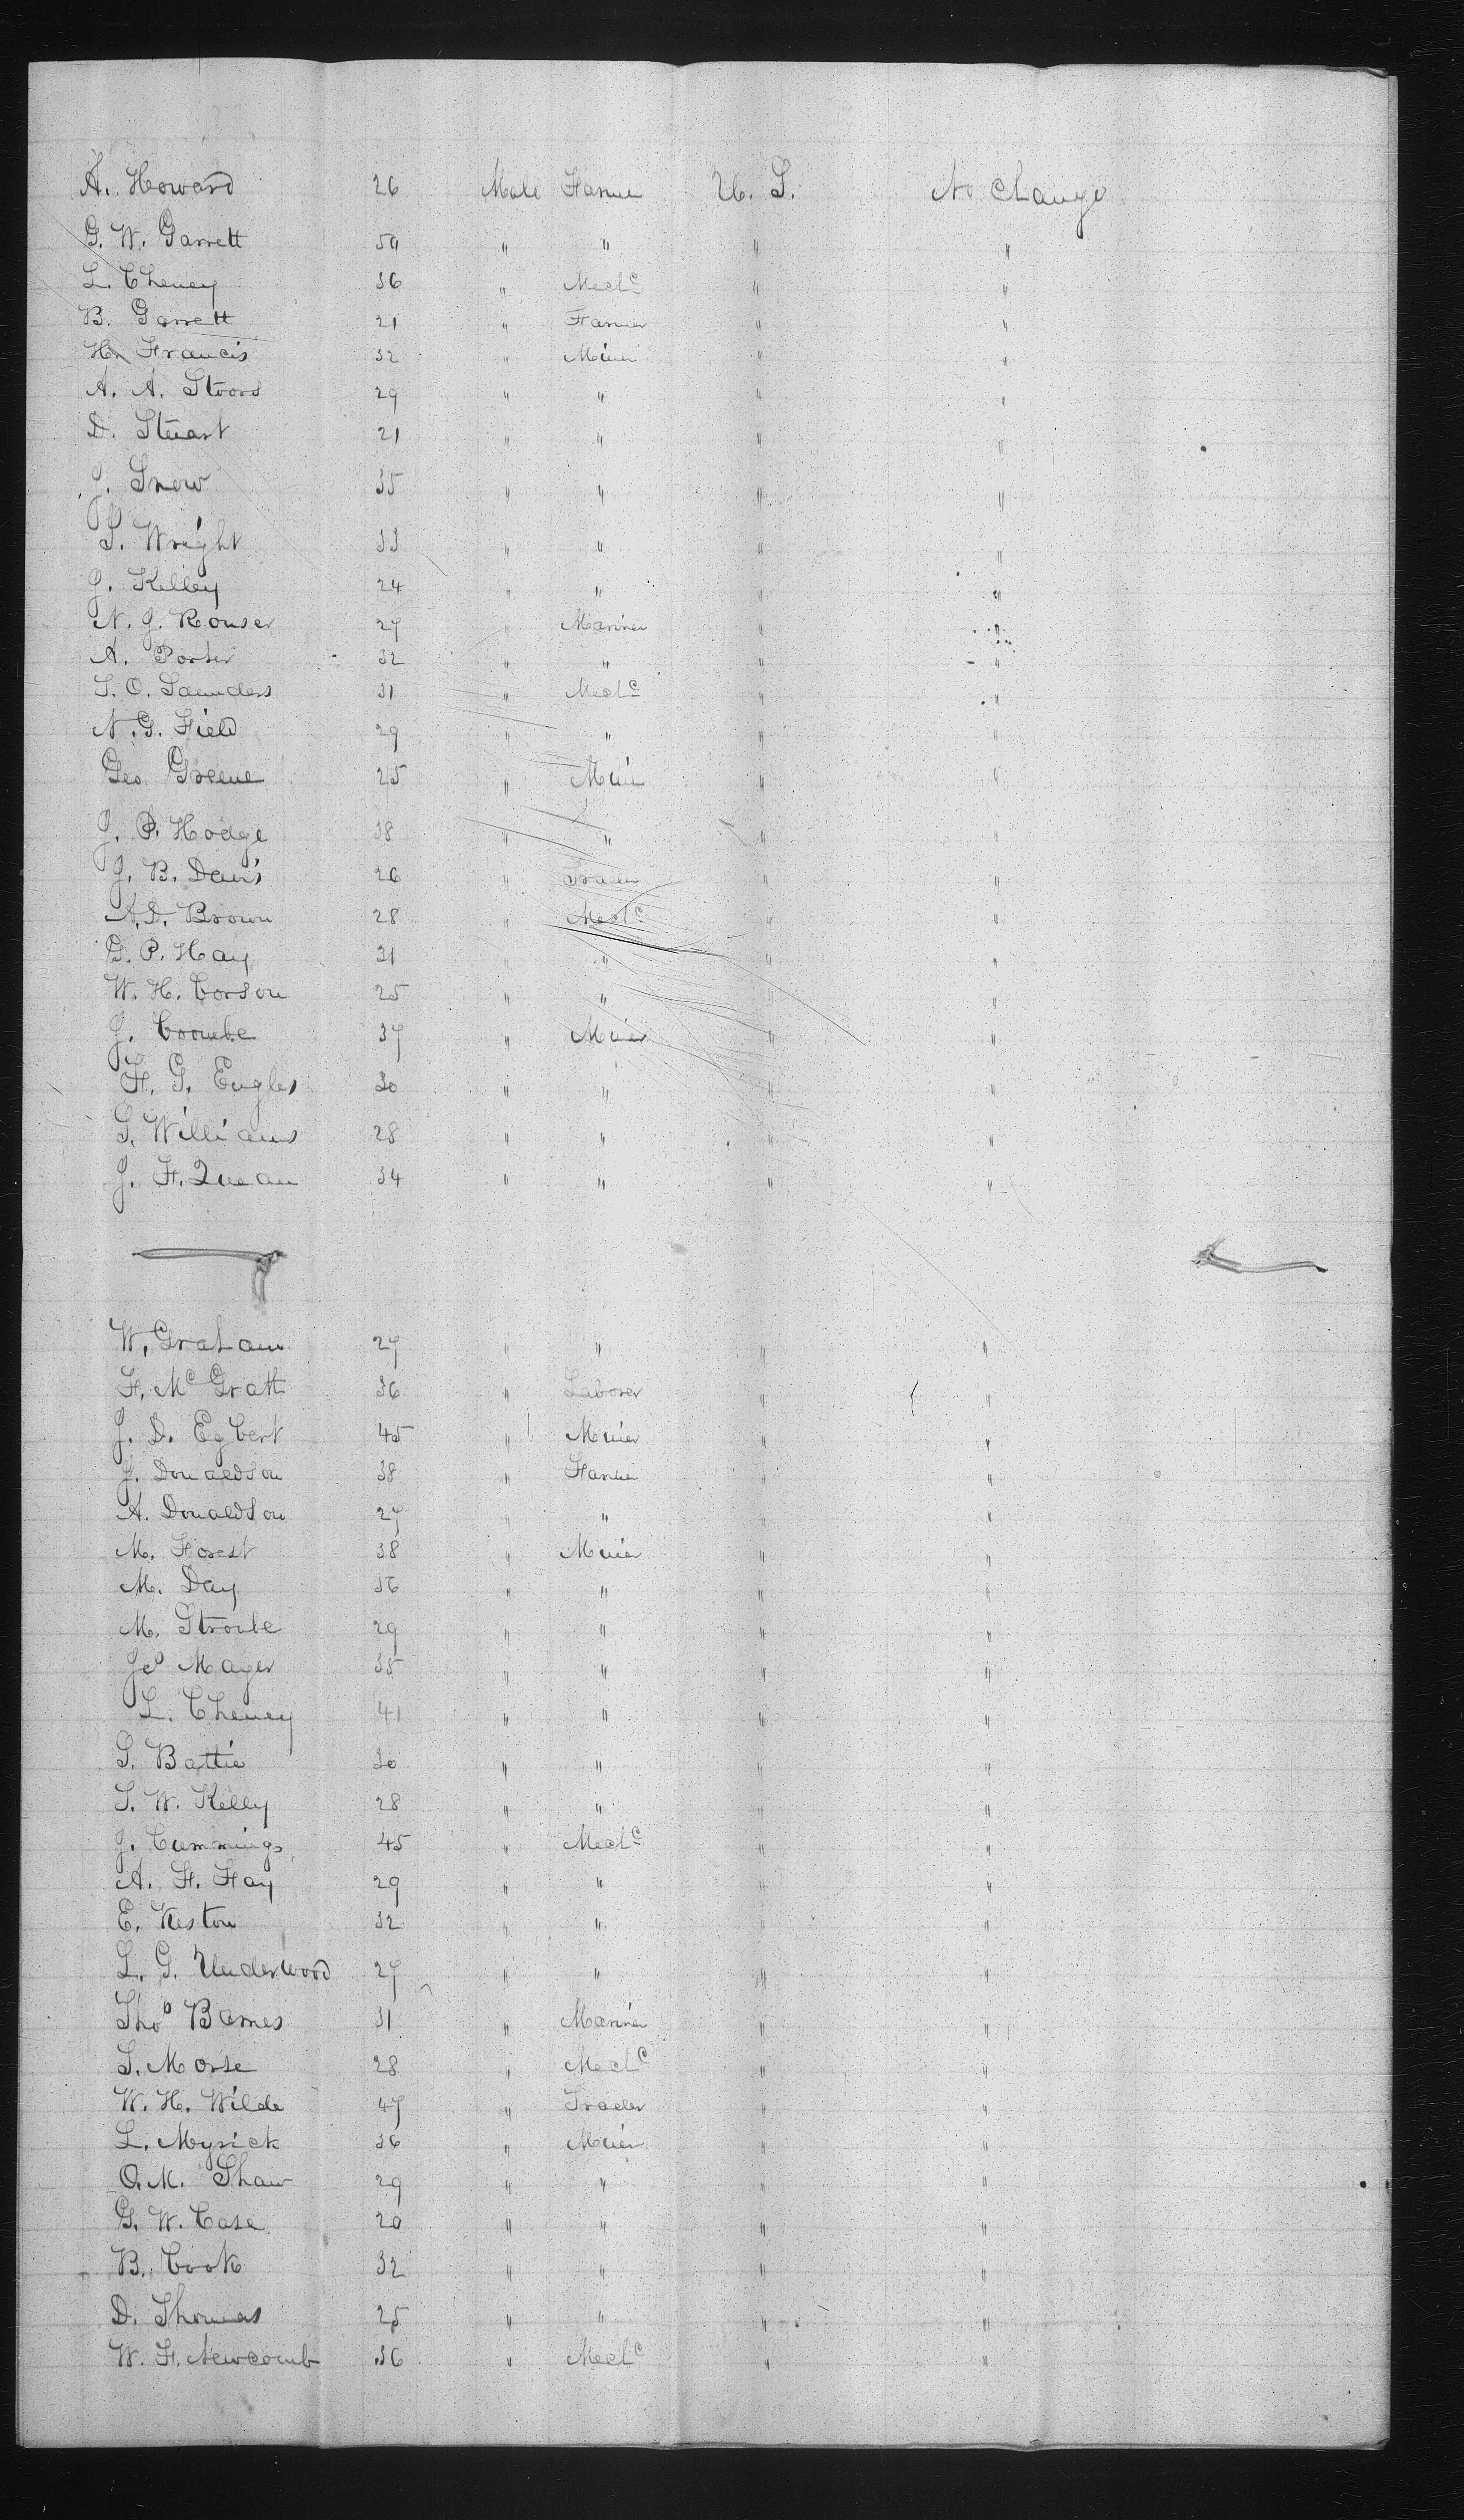 A. Howard 26 Male Farmer U. S. No Change
G. W. Garrett 50 " " " "
L. Cheney 36 " Mechc " "
B. Garrett 21 " Farmer " "
H. Francis 32 " Miner " "
A. A. Stoors 29 " " " "
D. Stuart 21 " " " "
J. Snow 35 " " " "
S. Wright 33 " " " "
J. Kelley 24 " " " "
N. J. Rouser 27 " Mariner " "
A. Porter 32 " " " "
S. O. Saunders 31 " Mechc " "
N. G. Field 29 " " " "
Geo Greene 25 " Miner " "
J. P. Hodge 38 " " " "
J. B. Davis 26 " Trader " "
A. D. Brown 28 " Mechc " "
G. P. Hay 31 " " " "
W. H. Corson 25 " " " "
J. Coombe 37 " Miner " "
F. G. Engles 30 " " " "
S. Williams 28 " " " "
J. F. 34 " " " "
W. Graham 27 " " " "
F. McGrath 36 " Laborer " "
J. D. Egbert 45 " Miner " "
J. Donaldson 38 " Farmer " "
A. Donaldson 27 " " " "
M. Forest 38 " Miner " "
M. Day 36 " " " "
M. Stroube 29 " " " "
Jos Mayer 35 " " " "
L. Cheney 41 " " " "
S. Battie 30 " " " "
S. W. Kelly 28 " " " "
J. Cummings 45 " Mechc " "
A. F. Fay 29 " " " "
E. Keston 32 " " " "
L. G. Underwood 27 " " " "
Thos Barnes 31 " Mariner " "
S. Morse 28 " Mechc " "
W. H. Wilde 47 " Trader " "
L. Myrick 36 " Miner " "
O. M. Shaw 29 " " " "
G. W. Case 20 " " " "
B. Cook 32 " " " "
D. Thomas 25 " " " "
W. F. Newcomb 36 " Mechc " "